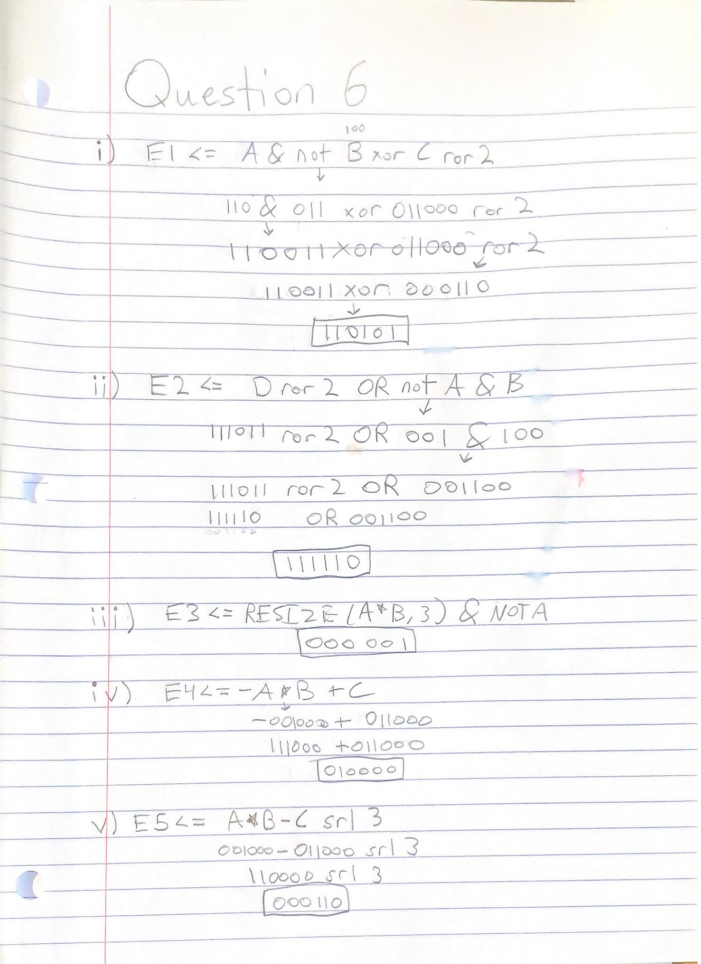 Question 6
100
i) E1 <= A & not B xor C ror 2
↓
110 & 011 xor 011000 ror 2
↓
110011 xor 011000 ror 2
↙
110011 xor 000110
↓
110101
ii) E2 <= D ror 2 OR not A & B
↓
111011 ror 2 OR 001 & 100
↙
111011 ror 2 OR 001100
111110 OR 001100
111110
iii) E3 <= RESIZE (A*B, 3) & NOT A
000 001
iv) E4 <= -A*B + C
↓
-001000 + 011000
111000 + 011000
010000
v) E5 <= A*B-C srl 3
001000 - 011000 srl 3
110000 srl 3
000110